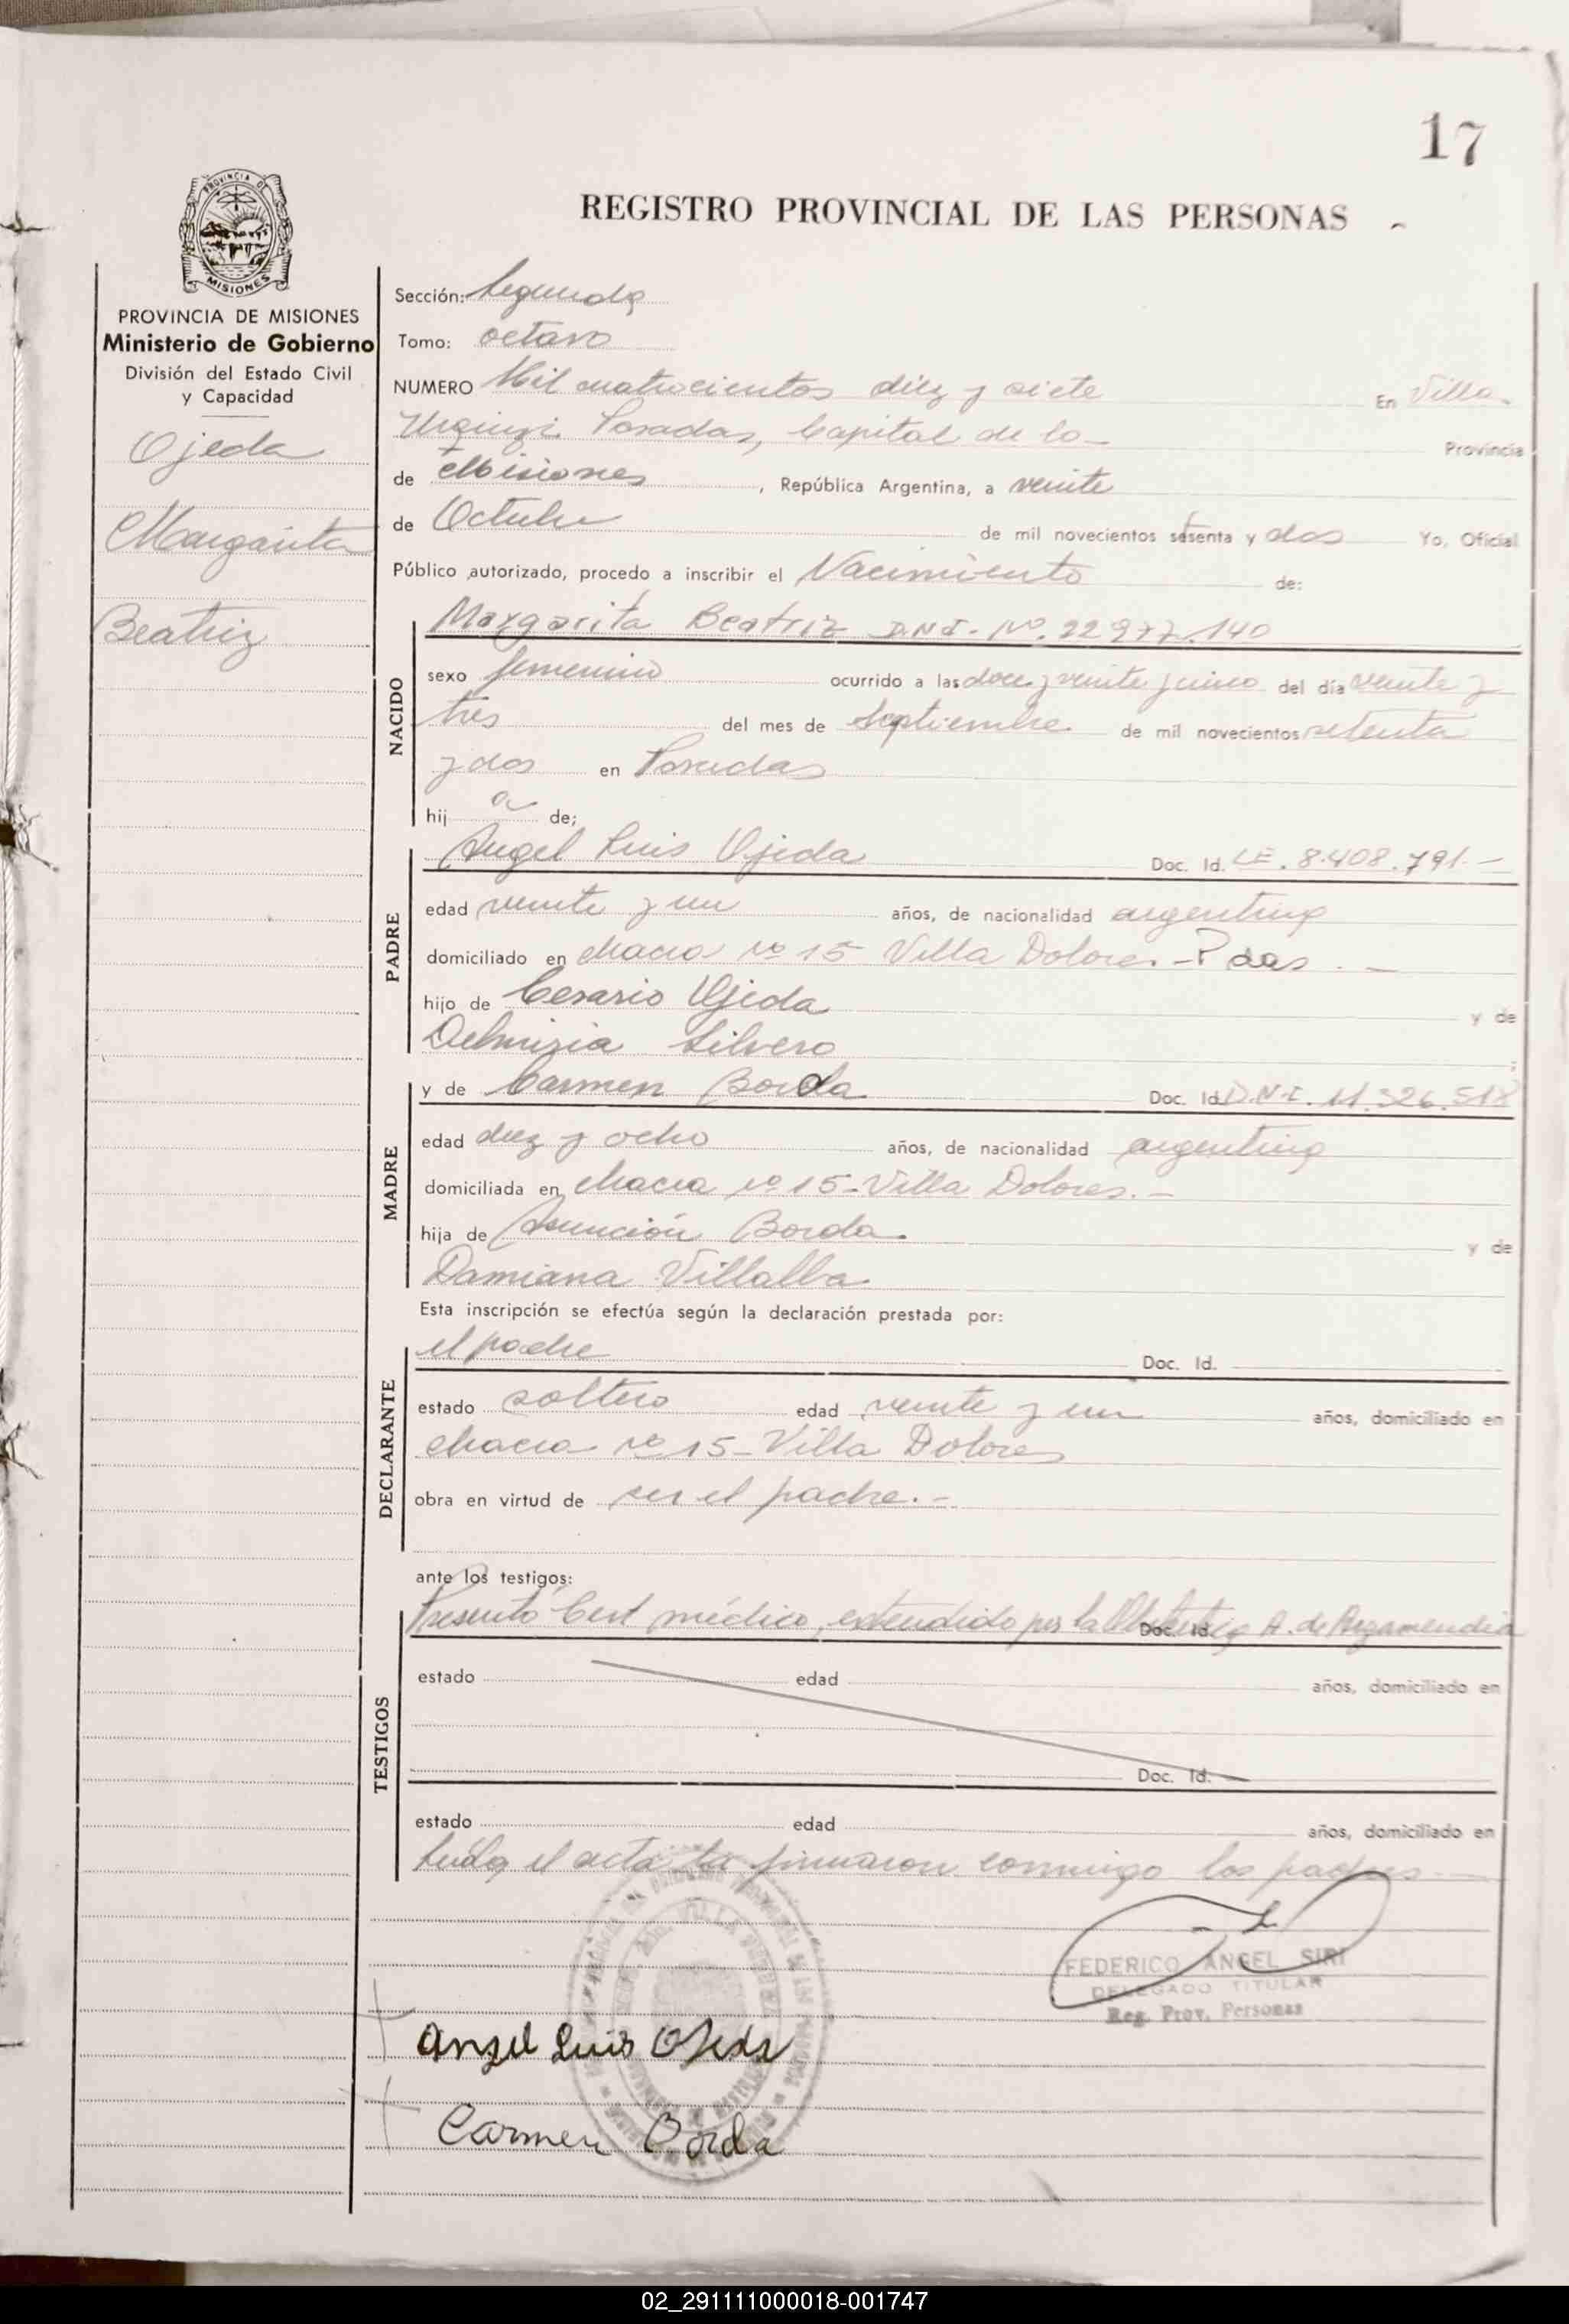 17
REGISTRO PROVINCIAL DE LAS PERSONAS
PROVINCIA DE
MISIONES
PROVINCIA DE MISIONES
Ministerio de Gobierno
División del Estado Civil
y Capacidad
Ojeda
Margarita
Beatriz
Sección: Segunda
Tomo: octavo
NUMERO Mil cuatrocientos diez y siete En Villa
Urquiza Posadas, Capital de la Provincia
de Misiones, República Argentina, a veinte
de Octubre de mil novecientos setenta y dos Yo, Oficial
Público autorizado, procedo a inscribir el Nacimiento de:
NACIDO
Margarita Beatriz D.N.I. Nº. 22.977.140
sexo femenino ocurrido a las doce y veinte y cinco del día veinte y
tres del mes de Septiembre de mil novecientos setenta
y dos en Posadas
hij a de;
PADRE
Angel Luis Ojeda Doc. Id. L.E. 8.408.791.-
edad veinte y un años, de nacionalidad argentina
domiciliado en chacra nº 15 Villa Dolores - Pdas. -
hijo de Cesario Ojeda y de
Silvero
MADRE
y de Carmen Borda Doc. Id. D.N.I. 11.326.518
edad diez y ocho años, de nacionalidad argentina
domiciliada en chacra nº 15 - Villa Dolores. -
hija de Asunción Borda y de
Damiana Villalba
Esta inscripción se efectúa según la declaración prestada por:
DECLARANTE
el padre Doc. Id.
estado soltero edad veinte y un años, domiciliado en
chacra nº 15 - Villa Dolores
obra en virtud de ser el padre. -
ante los testigos:
TESTIGOS
Presentó Cert. médico, extendido por la Obstetrica A. de Argamendia Doc. Id.
estado edad años, domiciliado en
Doc. Id.
estado edad años, domiciliado en
Leída el acta la firmaron conmigo los padres -
FEDERICO ANGEL SIRI
DELEGADO TITULAR
Reg. Prov. Personas
Angel Luis Ojeda
Carmen Borda
02_291111000018-001747